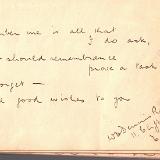 ber me is all that
I do ask,
should remembrance
prove a task
orget —
good wishes to you